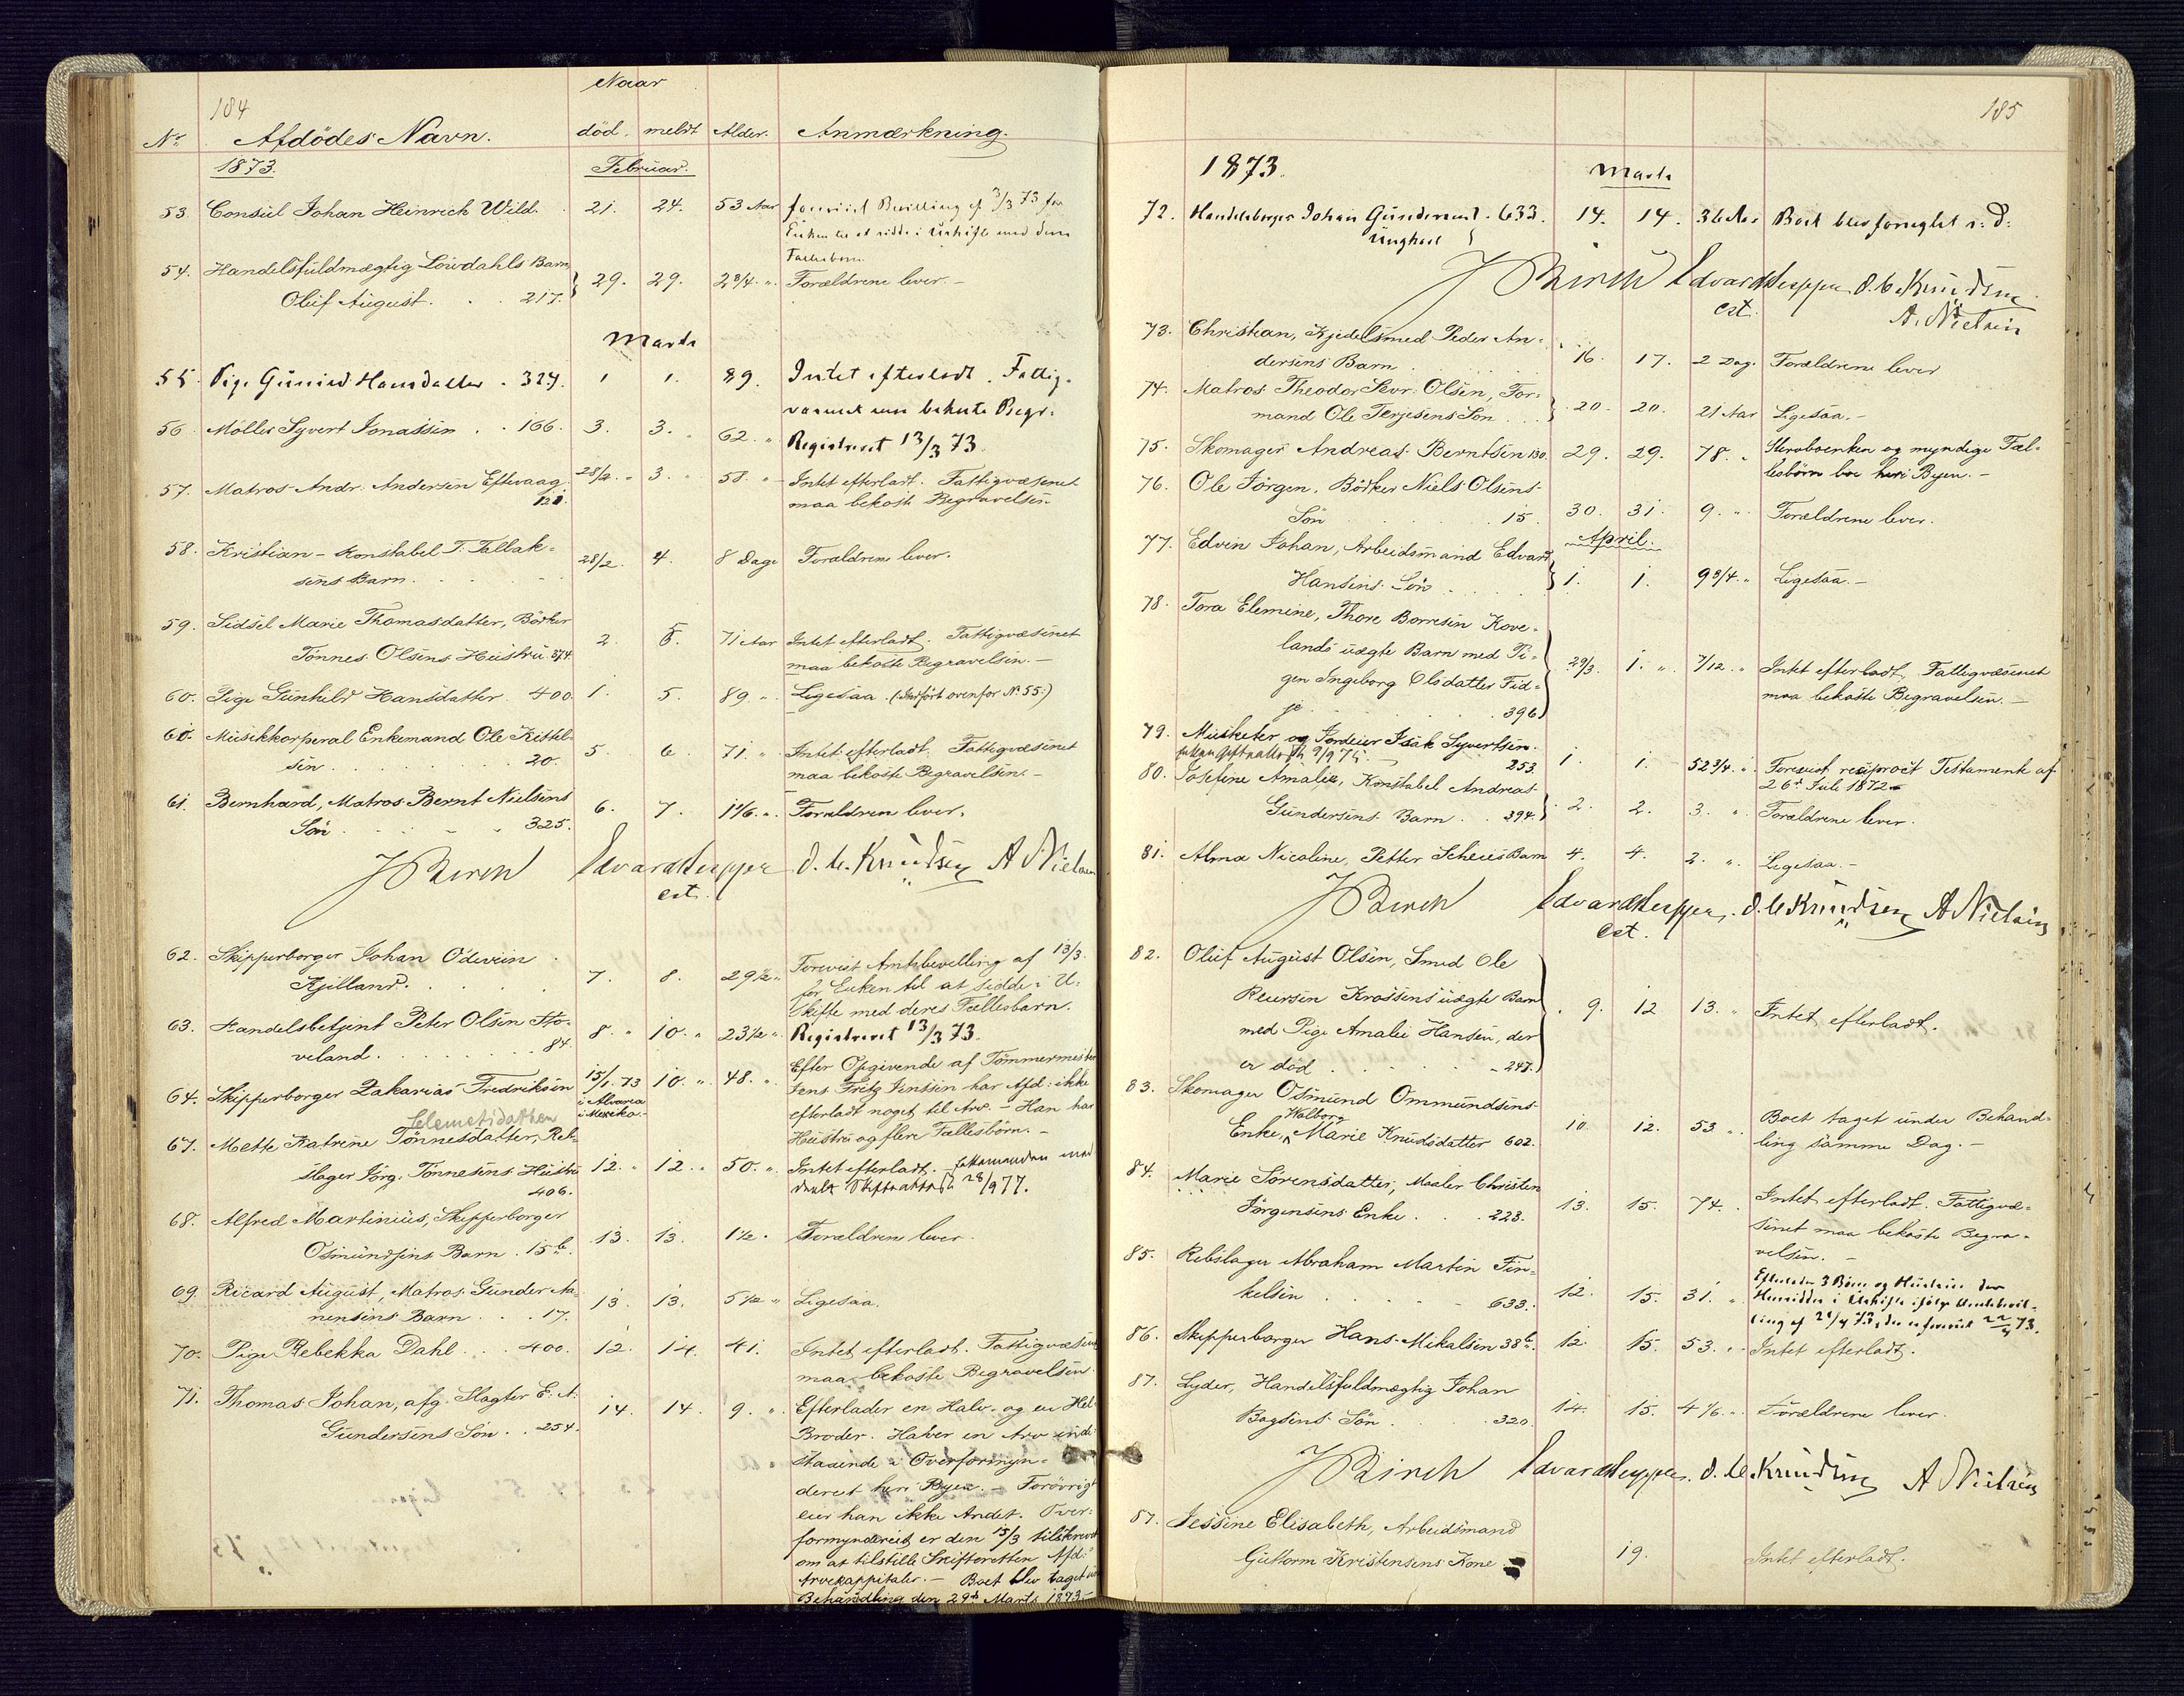 184
Naar
No. Afdödes Navn. död. meldt Alder. Anmærkning.
1873. Februar.
53. Consul Johan Heinrich Wild. 21. 24. 53 Aar forevist Bevilling af 3/3 73 for
Enken til at sidde i Uskifte med deres
Fællesbørn
54. Handelsfuldmægtig Löwdahls Barn
Oluf August. . . 217. 29. 29. 2 3/4 " Forældrene lever.-
Marts
55. Pige Gunild Hansdatter . 327. 1 1. 89. Intet efterladt. Fattig-
væsenet maa bekoste Begr.
56. Möller Syvert Jonassen . . 166. 3. 3. 62. " Registreret 13/3 73.
57. Matros Andr. Andersen Eftevaag 28/2. " 3. " 58. " Intet efterladt. Fattigvæsenet
121. maa bekoste Begravelsen
58. Kristian - Konstabel T. Tallak-
sens Barn. . . . 28/2. 4. 8 Dage Forældrene lever.
59. Sidsel Marie Thomasdatter, Bödker
Tönnes Olsens Hustru. 374 2. 5. 71 Aar Intet efterladt. Fattigvæsenet
maa bekoste Begravelsen.-
60. Pige Gunhild Hansdatter. 400 1. 5. 89 " Ligesaa. (Indfört ovenfor No 55:)
60. Musikkorporal Enkemand Ole Kittel-
sen . . . . 20. 5 6 71. " Intet efterladt. Fattigvæsenet
maa bekoste Begravelsen.-
61. Bernhard, Matros Bernt Nielsens
Sön . . . . 325. 6. 7. 1 1/6. " Forældrene lever.
J Birch Edvard Heppe O. C. Knudsen A Nielsen
cst.
62. Skipperborger Johan Odevin
Kjilland. . . . . 7. 8. 29 1/2 " Forevist Amtsbevilling af 13/3.
for Enken til at sidde i U-
skifte med deres Fællesbarn.
63. Handelsbetjent Peter Olsen Ho-
veland. . . . 84. 8. " 10. " 23 1/2 " Registreret 13/3 73.
64. Skipperborger Zakarias Fredriksen 15/1. 73 10. " 48. " Efter Opgivende af Tömmermester
i Alvara
i Mexiko.- Jens Fritz Jensen har Afd: ikke
efterladt noget til Arv. - Han har
Hustru og flere Fællesbörn.-
Clemetsdatter
67. Mette Katrine Tönnesdatter, Reb-
slager Jörg. Tönnesens Hustru 12. " 12. " 50. " Intet efterladt. -
406. 28/9 77.
68. Alfred Martinius, Skipperborger
Osmundsens Barn . 15 b. 13. 13. 1 1/2. Forældrene lever.
69. Ricard August, Matros Gunder Aa-
nensens Barn . . 17. 13. 13. 5 1/2 " Ligesaa.
70. Pige Rebekka Dahl . . 400. 12. 14. 41. Intet efterladt. Fattigvæsenet
maa bekoste Begravelsen.
71. Thomas Johan, afg. Slagter E. A:
Gundersens Sön . . 254. 14. 14. 9. " Efterlader en Halv- og en Hel-
Broder. Haver en Arv inde-
staaende i Overformyn-
deriet heri Byen. - Forövrigt
eier han ikke Andet. Over-
formynderiet er den 15/3 tilskrevet
om at tilstille Skifteretten Afd:s
Arvekappitaler.- Boet blev taget un
Behandling den 29de Marts 1873.-
185
1873. Marts
72. Handelsborger Johan Gunderssen . 633. 14. 14. 36 Aar Boet blev forseglet s: D:
Ungkarl
J Birch Edvard Heppe O. C. Knudsen
cst. A. Nielsen
73. Christian, Kjedelsmed Peder An-
dersens Barn . . . 16. 17. 2 Dag. Forældrene lever
74. Matros Theodor Sevr. Olsen, For-
mand Ole Terjesens Sön . . . 20. 20. 21 Aar Ligesaa.-
75. Skomager Andreas Berntsen 130. 29. 29. 78. " Sterboenken og myndige Fæl-
lesbörn bor heri Byen.-
76. Ole Jörgen, Bödker Niels Olsens
Sön . . . . 15. 30. 31. 9. " Forældrene lever.
April.
77. Edvin Johan, Arbeidsmand Edvard
Hansens Sön . . . . 1. 1. 9 3/4. " Ligesaa.-
78. Tora Elemine, Thore Borresen Kove-
lands uægte Barn med Pi-
gen Ingeborg Olsdatter Fid-
je . . . . . 396. 29/3. 1. " 7/12. " Intet efterladt, Fattigvæsenet
maa bekoste Begravelsen.-
79. Musketer og Jordeier Isak Syvertsen.
253. 1. 1. 52 3/4. " Forevist reciprocit Testamente af
26de Juli 1872-
80. Josefine Amalie, Konstabel Andreas
Gundersens Barn . . 394. 2. 2. 3. " Forældrene lever.
81. Alma Nicoline, Petter Scheies Barn 4. 4. 2. " Ligesaa.-
J Birch Edvard Heppe. O. C Knudsen A Nielsen
cst.
82. Oluf August Olsen, Smed Ole
Reiersen Krossens uægte Barn
med Pige Amalie Hansen, der
er död . . . . 247. 9. 12 13. " Intet efterladt.
83. Skomager Osmund Ommundsens
Enke, Walborg Marie Knudsdatter 602. 10. 12. 53 " Boet taget under Behand-
ling samme Dag.-
84. Marie Sörensdatter, Maaler Christen
Jörgensens Enke . . . 223. 13. 15. 74. Intet efterladt. Fattigvæ-
senet maa bekoste Begra-
velsen.-
85. Rebslager Abraham Martin Tin-
kelsen . . . . 633. 12. 15. 31. " Efterlader 3 Börn og Hustru der
Hensidder i Uskifte ifölge Amtsbevil-
ling af 21/4 73, der er forevist 22/4 73.
86. Skipperborger Hans Mikalsen 38 b. 12 15. 53. " Intet efterladt.
87. Lyder, Handelsfuldmægtig Johan
Bogsens Sön . . . 320. 14. 15. 4 1/6. " Forældrene lever.
J Birch Edvard Heppe. O. C. Knudsen A Nielsen
87. Jessine Elisabeth, Arbeidsmand
Guttorm Kristensens Kone 19. Intet efterladt.